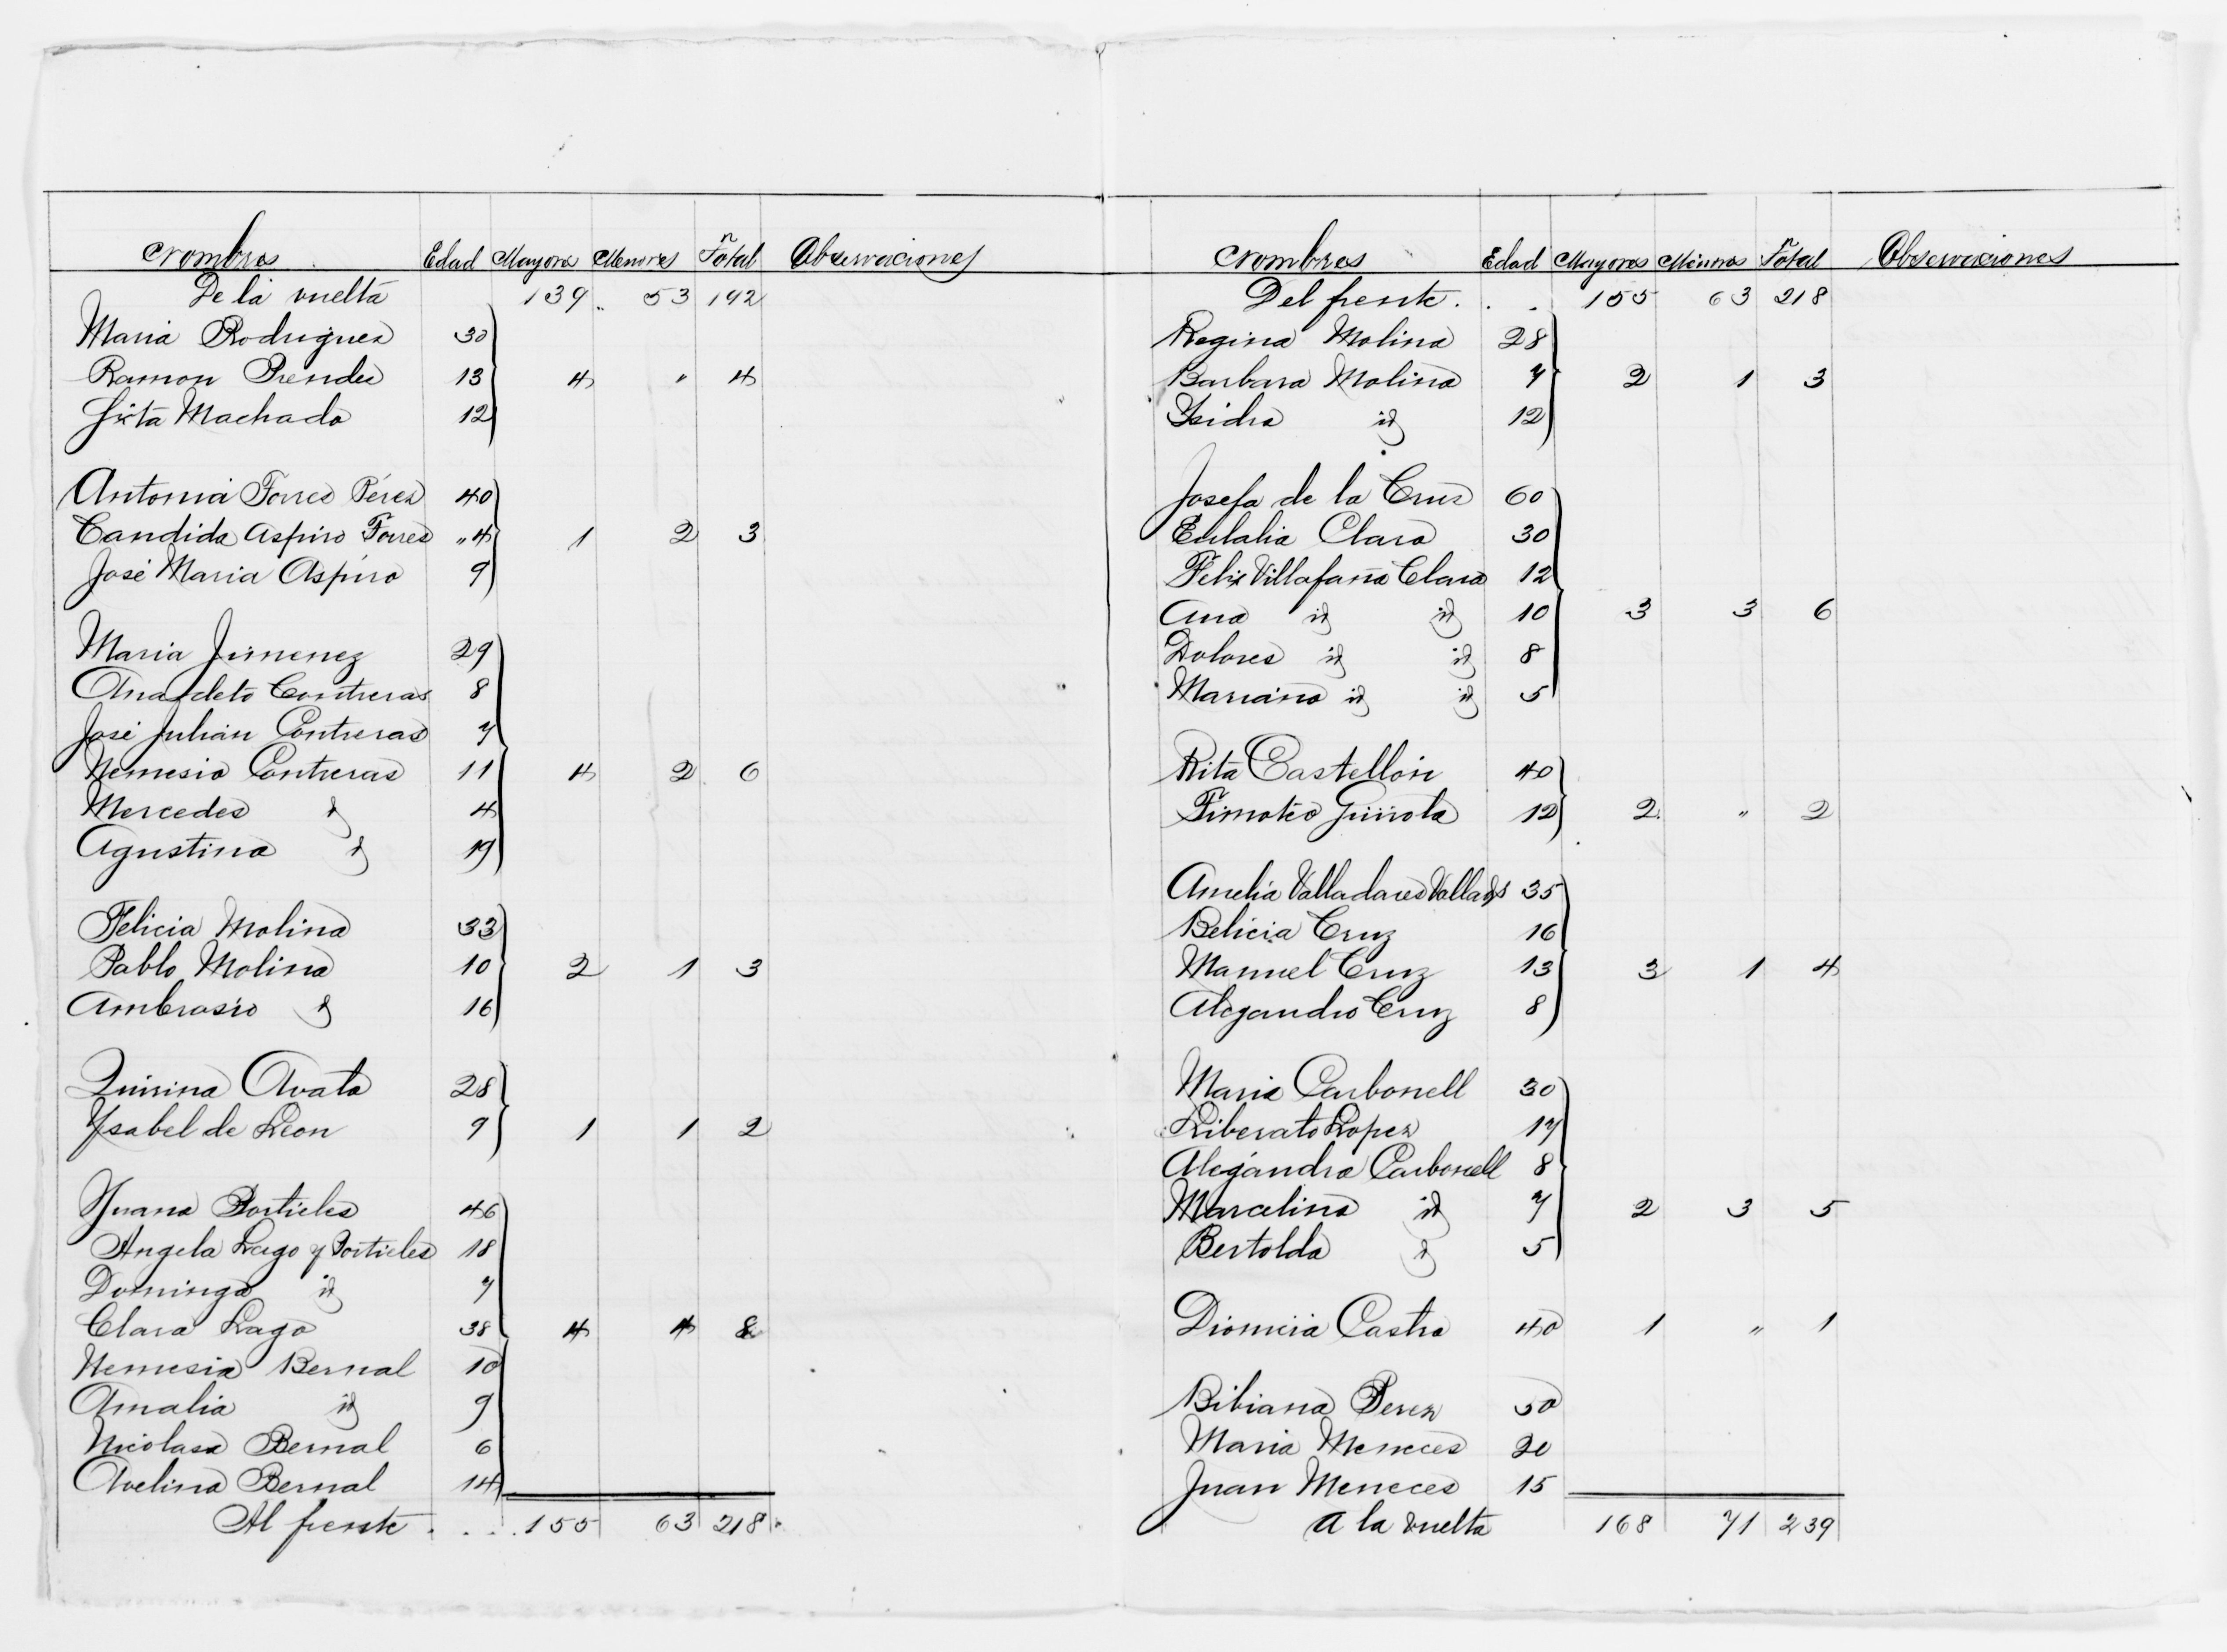 Nombres Edad Mayores Menores Total Observaciones
De la vuelta 139 .. 53 192
Maria Rodriguez 30
Ramon Prendes 13 4 " 4
Sixta Machado 12
Antonia Torres Pérez 40
Candida Aspiro Torres " 4 1 2 3
José Maria Aspiro 9
Maria Jimenez 29
Anacleto Contreras 8
José Julián Contreras 7
Nemesio Contreras 11 4 2 6
Mercedes id 4
Agustina id 19
Felicia Molina 33
Pablo Molina 10 2 1 3
Ambrosio id 16
Quirina Avata 28
Ysabel de Leon 9 1 1 2
Juana Portieles 46
Angela Lago y Portieles 18
Domingo id 7
Clara Lago 38 4 4 8
Nemesia Bernal 10
Amalia id 9
Nicolasa Bernal 6
Avelina Bernal 14
Al frente . . . . 155 63 218
Nombres Edad Mayores Menores Total Observaciones
Del frente . . . 155 63 218
Regina Molina 28
Barbara Molina 7 2 1 3
Ysidra id 12
Josefa de la Cruz 60
Eulalia Claro 30
Felix Villafaña Claro 12
Ana id id 10 3 3 6
Dolores id id 8
Mariano id id 5
Rita Castellón 40
Timoteo 12 2 " 2
Amelia Valladares 35
Belicia Cruz 16
Manuel Cruz 13 3 1 4
Alegandro Cruz 8
Maria Carbonell 30
Liberato Lopez 17
Alegandra Carbonell 8
Marcelina id 7 2 3 5
Bertolda id 5
Dionicia Castro 40 1 " 1
Bibiana Perez 50
Maria Meneces 20
Juan Meneces 15
A la vuelta 168 71 239